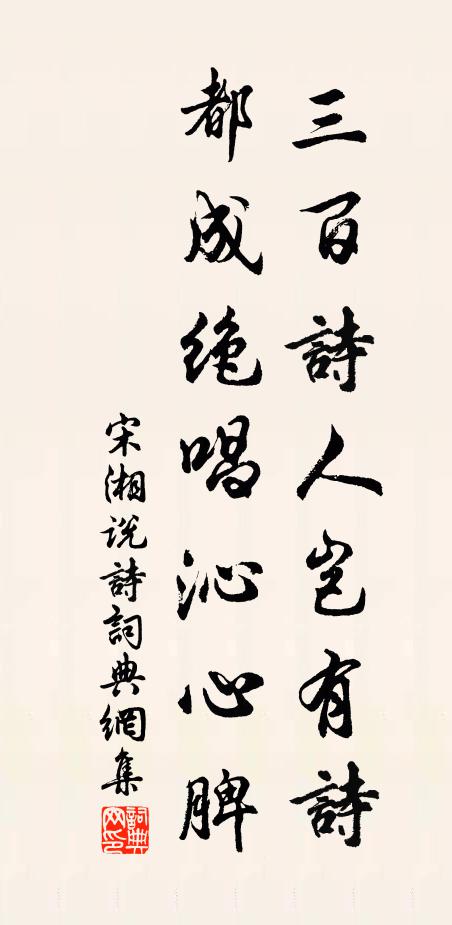 三百詩人岂有詩
都成绝唱沁心脾
宋湘说詩詞典網集
詞典
网印